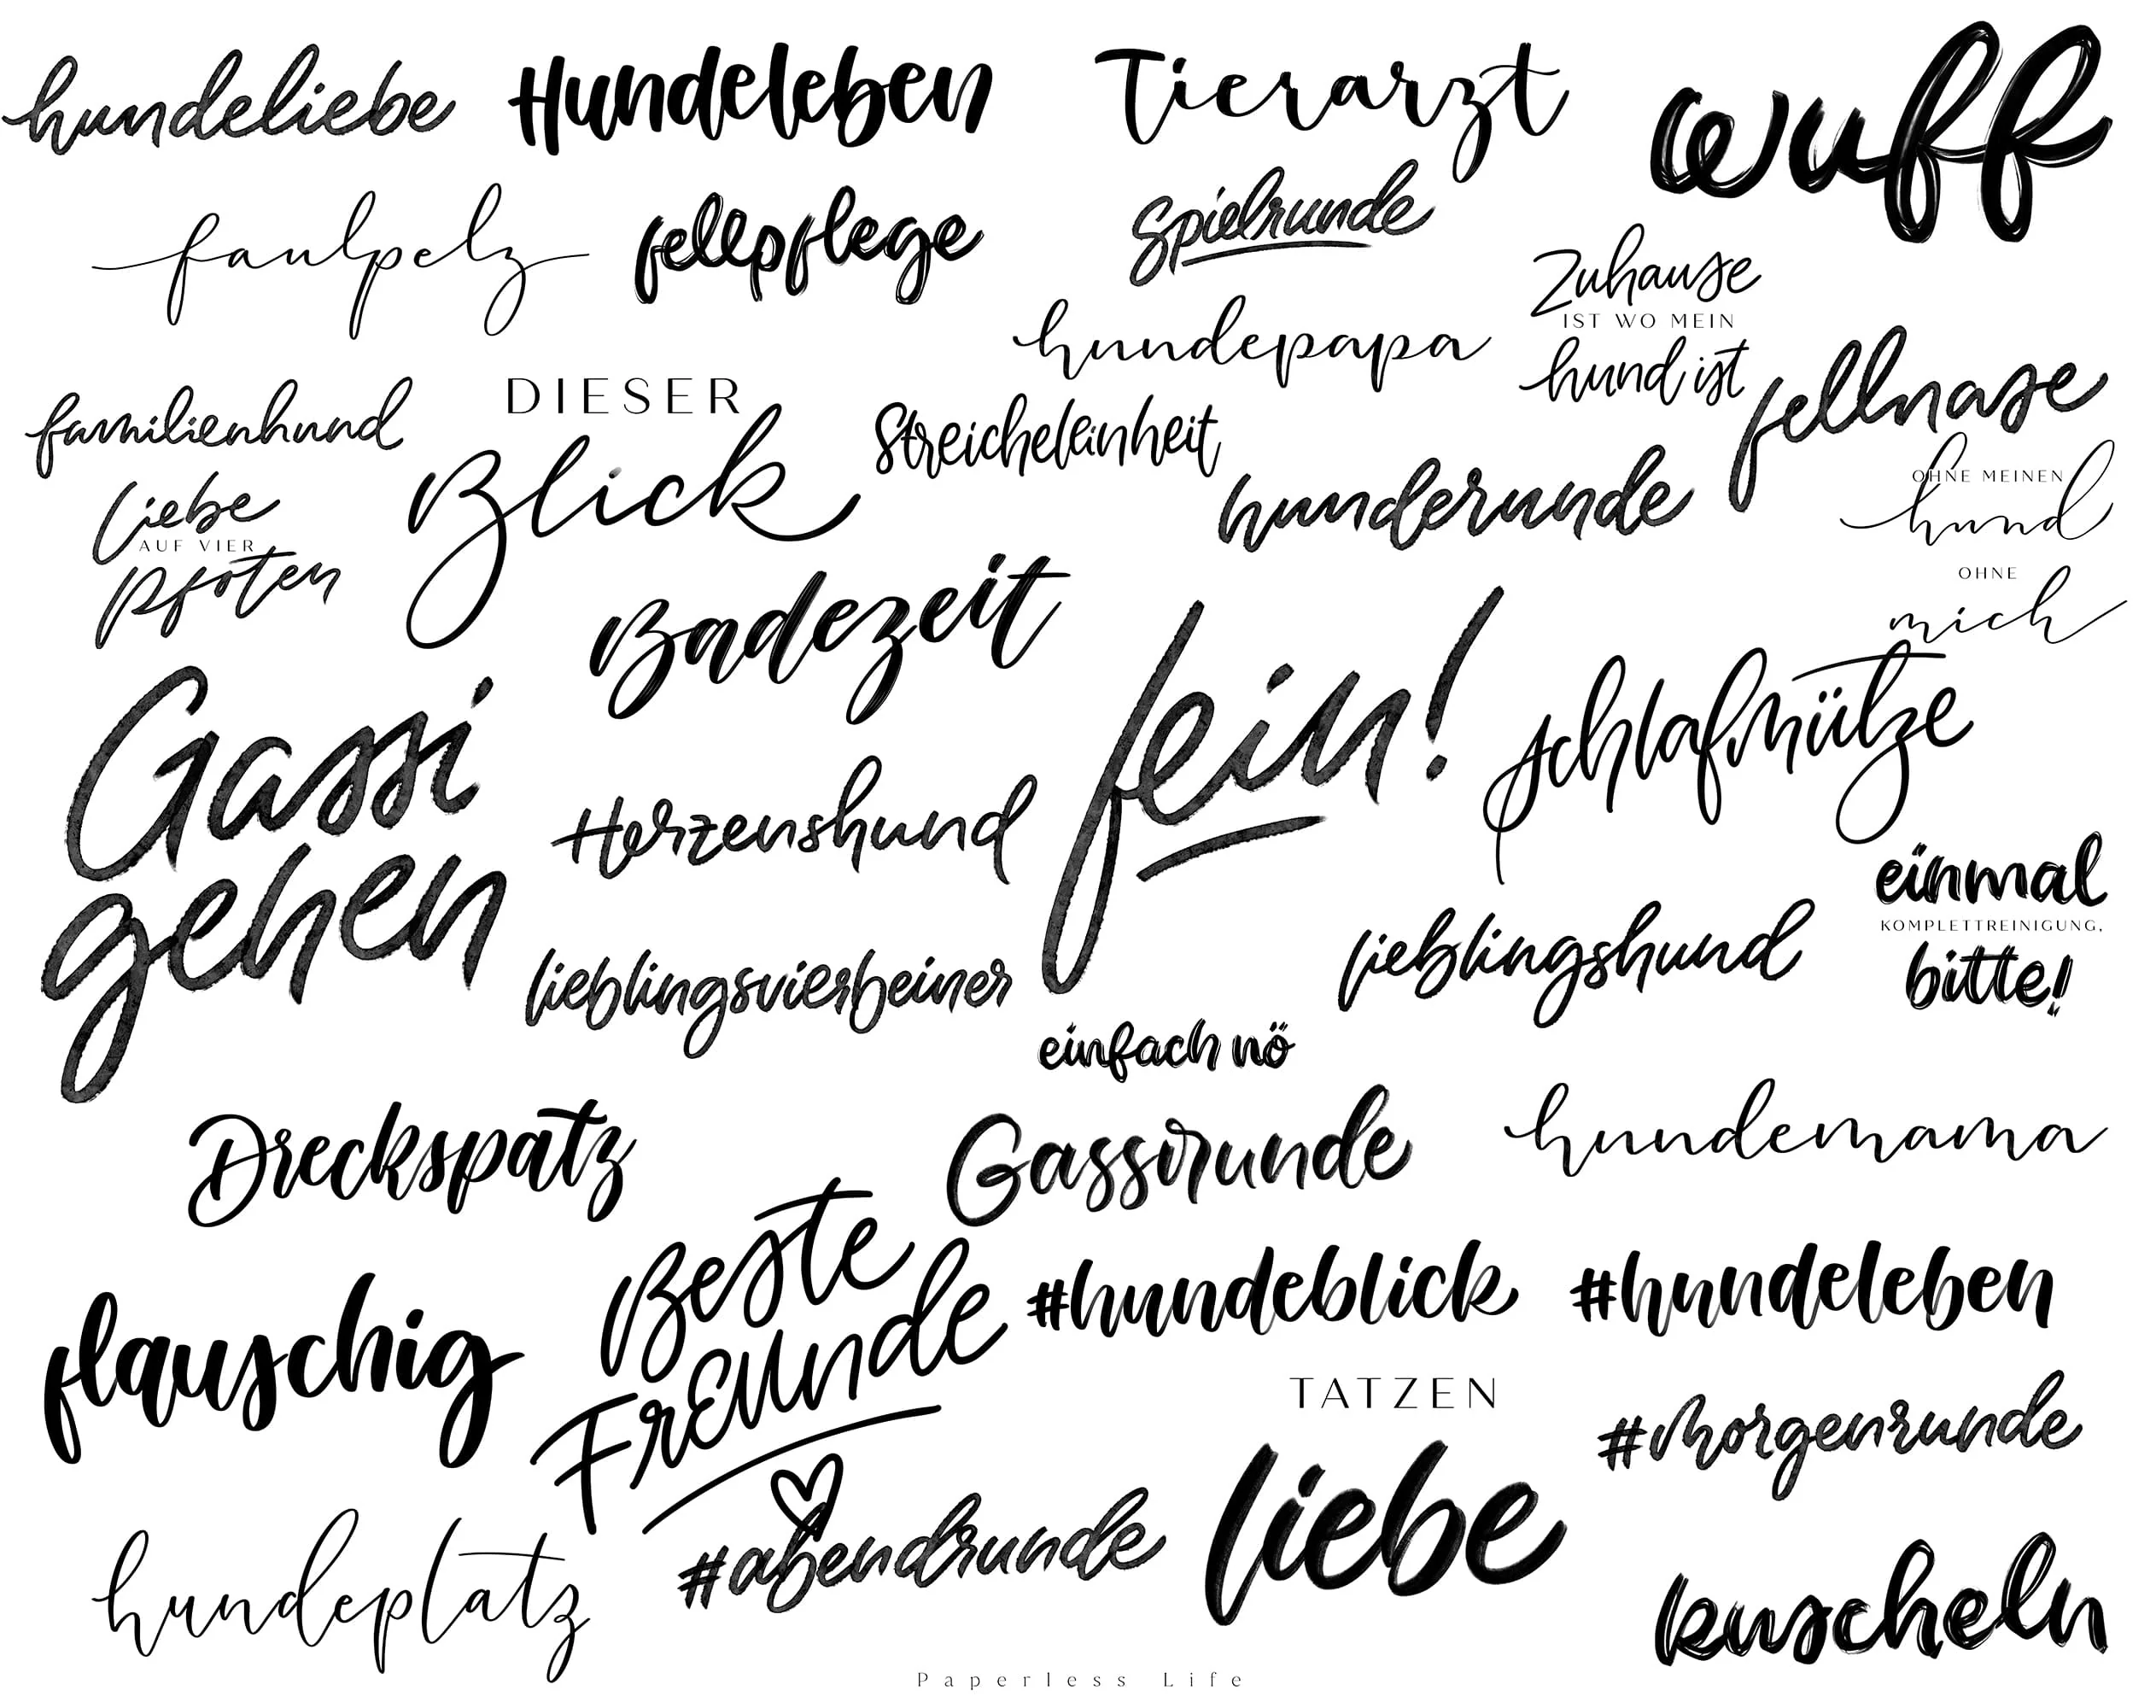 hundeliebe
Hundeleben
Tierarzt
wuff
faulpelz
fellpflege
Spielrunde
Zuhause
IST WO MEIN
hund ist
hundepapa
familienhund
DIESER
Blick
Streicheleinheit
hunderunde
fellnase
OHNE MEINEN
hund
OHNE
mich
liebe
AUF VIER
Pfoten
Badezeit
fein!
schlafmütze
Gassi
gehen
Herzenshund
einmal
KOMPLETTREINIGUNG,
bitte!
lieblingsvierbeiner
lieblingshund
einfach nö
Dreckspatz
Gassirunde
hundemama
flauschig
Beste
Freunde
#hundeblick
#hundeleben
TATZEN
liebe
#Morgenrunde
#abendrunde
hundeplatz
kuscheln
Paperless Life